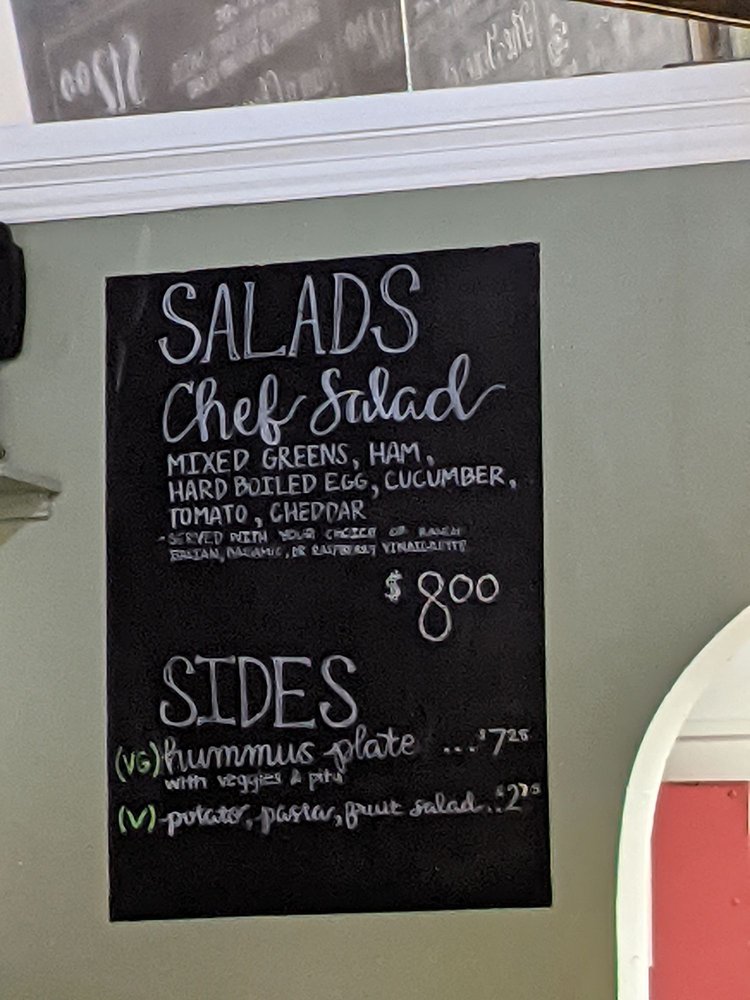 $12.00
SALADS
Chef Salad
MIXED GREENS, HAM,
HARD BOILED EGG, CUCUMBER,
TOMATO, CHEDDAR
-SERVED WITH YOUR CHOICE OF RANCH
ITALIAN, BALSAMIC, OR RASPBERRY VINAIGRETTE
$800
SIDES
(VG) hummus plate ...$725
with veggies & pita
(V) potato, pasta, fruit salad..$2